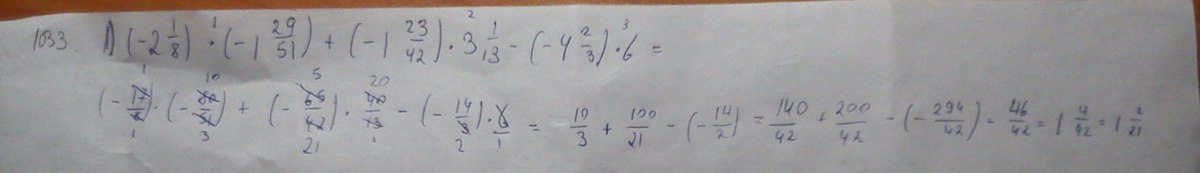 1033. 1) (-2 1/8) · (-1 29/51) + (-1 23/42) · 3 1/13 - (-4 2/3) · 6 =
(-17/8) · (-80/51) + (-65/42) · 40/13 - (-14/3) · 6/1 = 10/3 + 100/21 - (-14/2) = 140/42 + 200/42 - (-294/42) = 46/42 = 1 4/42 = 1 2/21